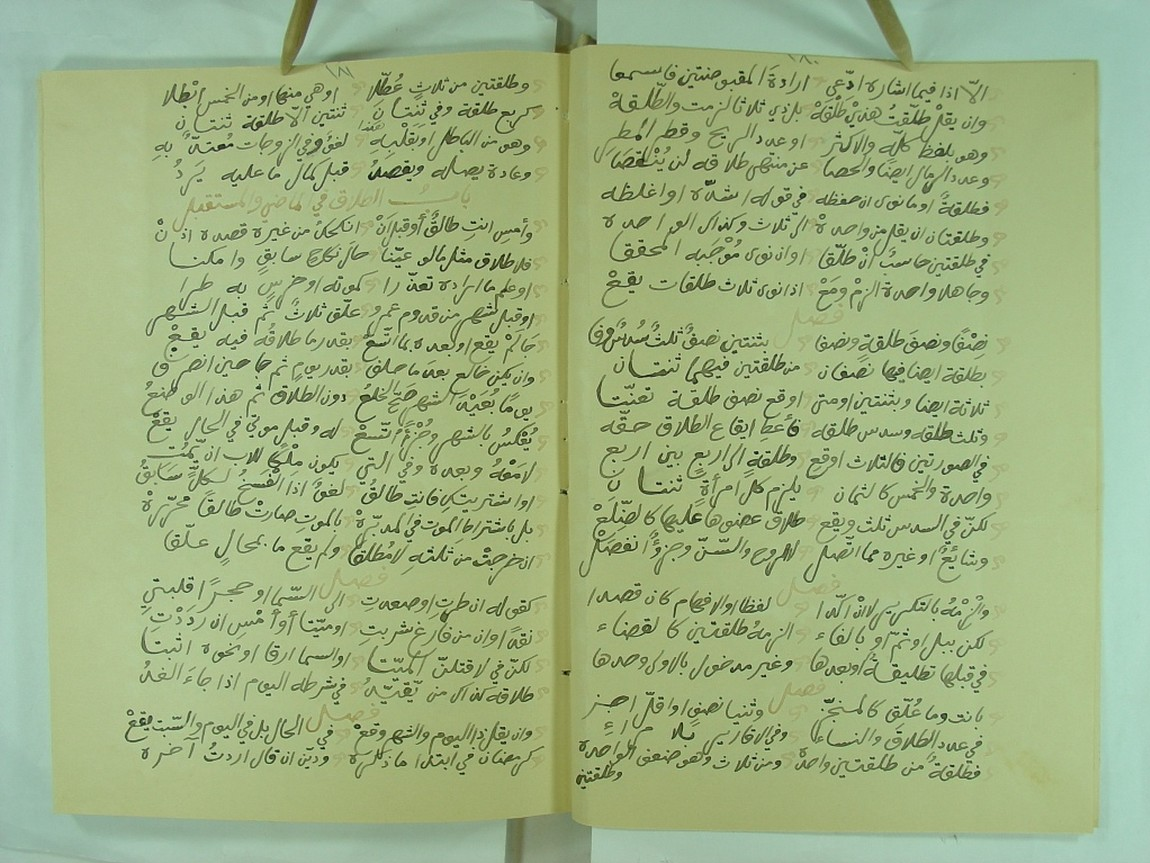 ١٨٠
الّا اذا فيما اشارة ادّعى ارادة المقبوضتين فاسمعا
وان يقل طلّقت هذي طلقة بل ذي ثلاثا لزمت والطلقة
وهو بلفظ كلّه والاكثر او عدد الريح وقطر المطر
وعدد الرمال ايضا والحصا عن منتهى طلاقه لن ينقصا
فطلقة او ما نوى ان حفظه في قوله اشدّه او اغلظه
وطلقتان ان يقل من واحدة الى ثلاث وكذاك الواحدة
في طلقتين حاسب ان طلّقا او ان نوى موجبه المحققا
وجاهلا واحدة الزم ومع اذا نوى ثلاث طلقات يقع
فصل
نصفا ونصف طلقة ونصفا بثنتين نصف ثلث سدس
بطلقة ايضا فيها نصفان من طلقتين فيهما ثنتان
ثلاثة ايضا وبثنتين او متى اوقع نصف طلقة تعنّتا
وثلث طلقة وسدس طلقة فأعط ايقاع الطلاق حقّه
في الصورتين فالثلاث اوقع وطلقة الرابع بين اربع
واحدة والخمس كالثمان يلزم كل امرأة ثنتان
لكنّ في السدس ثلث ويقع طلاق عضوها عليها كالضلع
وشائع او غيره مما اتّصل لا الروح والسنّ وجزؤ انفصل
فصل
والزمه بالتكرير لا ان اكّدا لفظا او الافهام كان قصدا
لكن ببل او ثمّ او بالفاء الزمه طلقتين كالقضاء
في قبلها تطليقة او بعدها وغير مدخول بالاولى وحدها
بانت وما علّق كالمنجّز فصل وثنيا نصف او اقلّ اجز
في عدد الطلاق والنساء وفي الاقارير بلا مراء
فطلقة من طلقتين واحدة ومن ثلاث وهو ضعف الواحدة
وطلقتين
وطلقتين من ثلاث عطّلا او هي منها او من الخمس ابطلا
كربع طلقة وفي ثنتان ثنتين الّا طلقة ثنتان
وهو من الباطل او بقلبه لغو وفي الزوجات معتدّ به
وعادة يصله ويقصد قبل كمال ما عليه يرد
باب الطلاق في الماضي والمستقبل
وأمس انت طالق أو قبل ان انكحك من غيره قصده اذن
فلا طلاق مثل ما لو عيّنا حال نكاح سابق وامكنا
او علم ما اراده تعذّرا كموته او خرس به طرا
او قبل شهر من قدوم عمرو علّق ثلاث ثم قبل الشهر
جا لم يقع او بعده بما اتّسع بقدر ما طلاقه فيه يقع
وان يكن خالع بعد ما حلف بقدر يوم ثم جا حين انصرف
يوما بُعيد الشهر صحّ الخلع دون الطلاق ثم هذا الوضع
يعكس بالشهر وجزء اتّسع له وقبل موتي في الحال يقع
لا معه وبعده وفي التي يكون ملكا للاب ان يمت
او اشتريتك فانت طالق لغو اذا الفسخ لكل سابق
بل باشتراط الموت في المدبّرة بالموت صارت طالقا محرّرة
ان خرجت من ثلثه لا مطلقا ولم يقع ما بمحال علّقا
فصل
كقوله ان طرت او صعدت الى السما او حجرا قلبت
نقدا وان من فارغ شربت او ميّتا أو أمس ان رددت
لكنّ في لاقتلنّ الميّتا او السما ارقا او نحوه اثبتا
طلاقه كذاك من تقيّد في شرطه اليوم اذا جاء الغد
فصل
وان يقل ذا اليوم والشهر وقع في الحال بل في اليوم والسبت يقع
كرمضان في ابتدا ما ذكره ودين ان قال اردت آخره